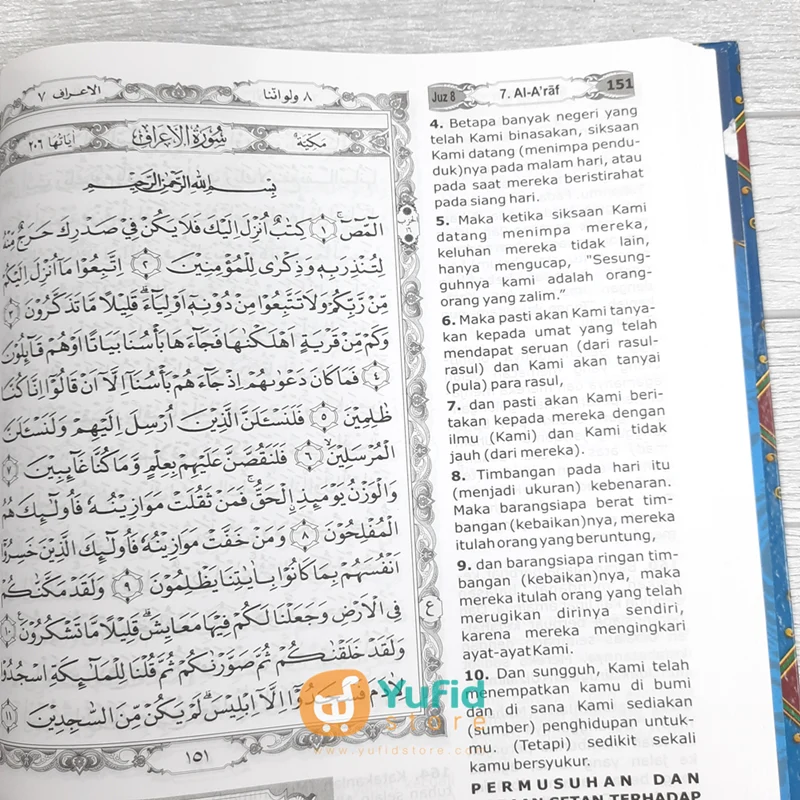 ٨ ولواننا
الاعراف ٧
مكية
سورة الاعراف
اياتها ٢٠٦
بسم الله الرحمن الرحيم
الۤمّۤصۤ ۚ ١ كِتٰبٌ اُنْزِلَ اِلَيْكَ فَلَا يَكُنْ فِيْ صَدْرِكَ حَرَجٌ مِّنْهُ
لِتُنْذِرَ بِهٖ وَذِكْرٰى لِلْمُؤْمِنِيْنَ ٢ اِتَّبِعُوْا مَآ اُنْزِلَ اِلَيْكُمْ
مِّنْ رَّبِّكُمْ وَلَا تَتَّبِعُوْا مِنْ دُوْنِهٖٓ اَوْلِيَاۤءَۗ قَلِيْلًا مَّا تَذَكَّرُوْنَ ٣
وَكَمْ مِّنْ قَرْيَةٍ اَهْلَكْنٰهَا فَجَاۤءَهَا بَأْسُنَا بَيَاتًا اَوْ هُمْ قَاۤىِٕلُوْنَ
٤ فَمَا كَانَ دَعْوٰىهُمْ اِذْ جَاۤءَهُمْ بَأْسُنَآ اِلَّآ اَنْ قَالُوْٓا اِنَّا كُنَّا
ظٰلِمِيْنَ ٥ فَلَنَسْـَٔلَنَّ الَّذِيْنَ اُرْسِلَ اِلَيْهِمْ وَلَنَسْـَٔلَنَّ
الْمُرْسَلِيْنَۙ ٦ فَلَنَقُصَّنَّ عَلَيْهِمْ بِعِلْمٍ وَّمَا كُنَّا غَاۤىِٕبِيْنَ ٧
وَالْوَزْنُ يَوْمَىِٕذِ ِۨالْحَقُّۚ فَمَنْ ثَقُلَتْ مَوَازِيْنُهٗ فَاُولٰۤىِٕكَ هُمُ
الْمُفْلِحُوْنَ ٨ وَمَنْ خَفَّتْ مَوَازِيْنُهٗ فَاُولٰۤىِٕكَ الَّذِيْنَ خَسِرُوْٓا
اَنْفُسَهُمْ بِمَا كَانُوْا بِاٰيٰتِنَا يَظْلِمُوْنَ ٩ وَلَقَدْ مَكَّنّٰكُمْ
فِى الْاَرْضِ وَجَعَلْنَا لَكُمْ فِيْهَا مَعَايِشَۗ قَلِيْلًا مَّا تَشْكُرُوْنَ ١٠
وَلَقَدْ خَلَقْنٰكُمْ ثُمَّ صَوَّرْنٰكُمْ ثُمَّ قُلْنَا لِلْمَلٰۤىِٕكَةِ اسْجُدُوْا
لِاٰدَمَ فَسَجَدُوْٓا اِلَّآ اِبْلِيْسَۗ لَمْ يَكُنْ مِّنَ السّٰجِدِيْنَ ١١
ع
١٥١
Juz 8
7. Al-A'rāf
151
4. Betapa banyak negeri yang
telah Kami binasakan, siksaan
Kami datang (menimpa pendu-
duk)nya pada malam hari, atau
pada saat mereka beristirahat
pada siang hari.
5. Maka ketika siksaan Kami
datang menimpa mereka,
keluhan mereka tidak lain,
hanya mengucap, "Sesung-
guhnya kami adalah orang-
orang yang zalim."
6. Maka pasti akan Kami tanya-
kan kepada umat yang telah
mendapat seruan (dari rasul-
rasul) dan Kami akan tanyai
(pula) para rasul,
7. dan pasti akan Kami beri-
takan kepada mereka dengan
ilmu (Kami) dan Kami tidak
jauh (dari mereka).
8. Timbangan pada hari itu
(menjadi ukuran) kebenaran.
Maka barangsiapa berat tim-
bangan (kebaikan)nya, mereka
itulah orang yang beruntung,
9. dan barangsiapa ringan tim-
bangan (kebaikan)nya, maka
mereka itulah orang yang telah
merugikan dirinya sendiri,
karena mereka mengingkari
ayat-ayat Kami.
10. Dan sungguh, Kami telah
menempatkan kamu di bumi
dan di sana Kami sediakan
(sumber) penghidupan untuk-
mu. (Tetapi) sedikit sekali
kamu bersyukur.
PERMUSUHAN DAN
SETAN TERHADAP
Yufid
store
www.yufidstore.com